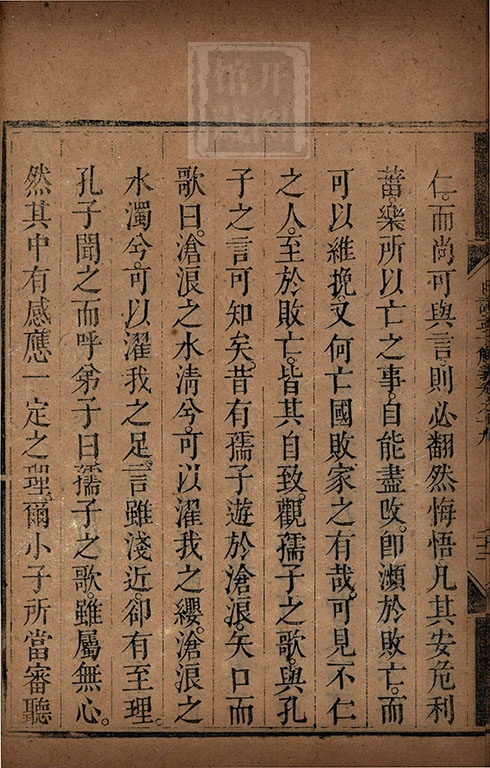 仁。而尚可與言。則必翻然悔悟。凡其安危利
菑。樂所以亡之事。自能盡改。卽瀕於敗亡。而
可以維挽。又何亡國敗家之有哉。可見不仁
之人。至於敗亡。皆其自致。觀孺子之歌。與孔
子之言可知矣。昔有孺子遊於滄浪。矢口而
歌曰。滄浪之水清兮。可以濯我之纓。滄浪之
水濁兮。可以濯我之足。言雖淺近。卻有至理。
孔子聞之而呼弟子曰。孺子之歌。雖屬無心。
然其中有感應一定之理。爾小子所當審聽